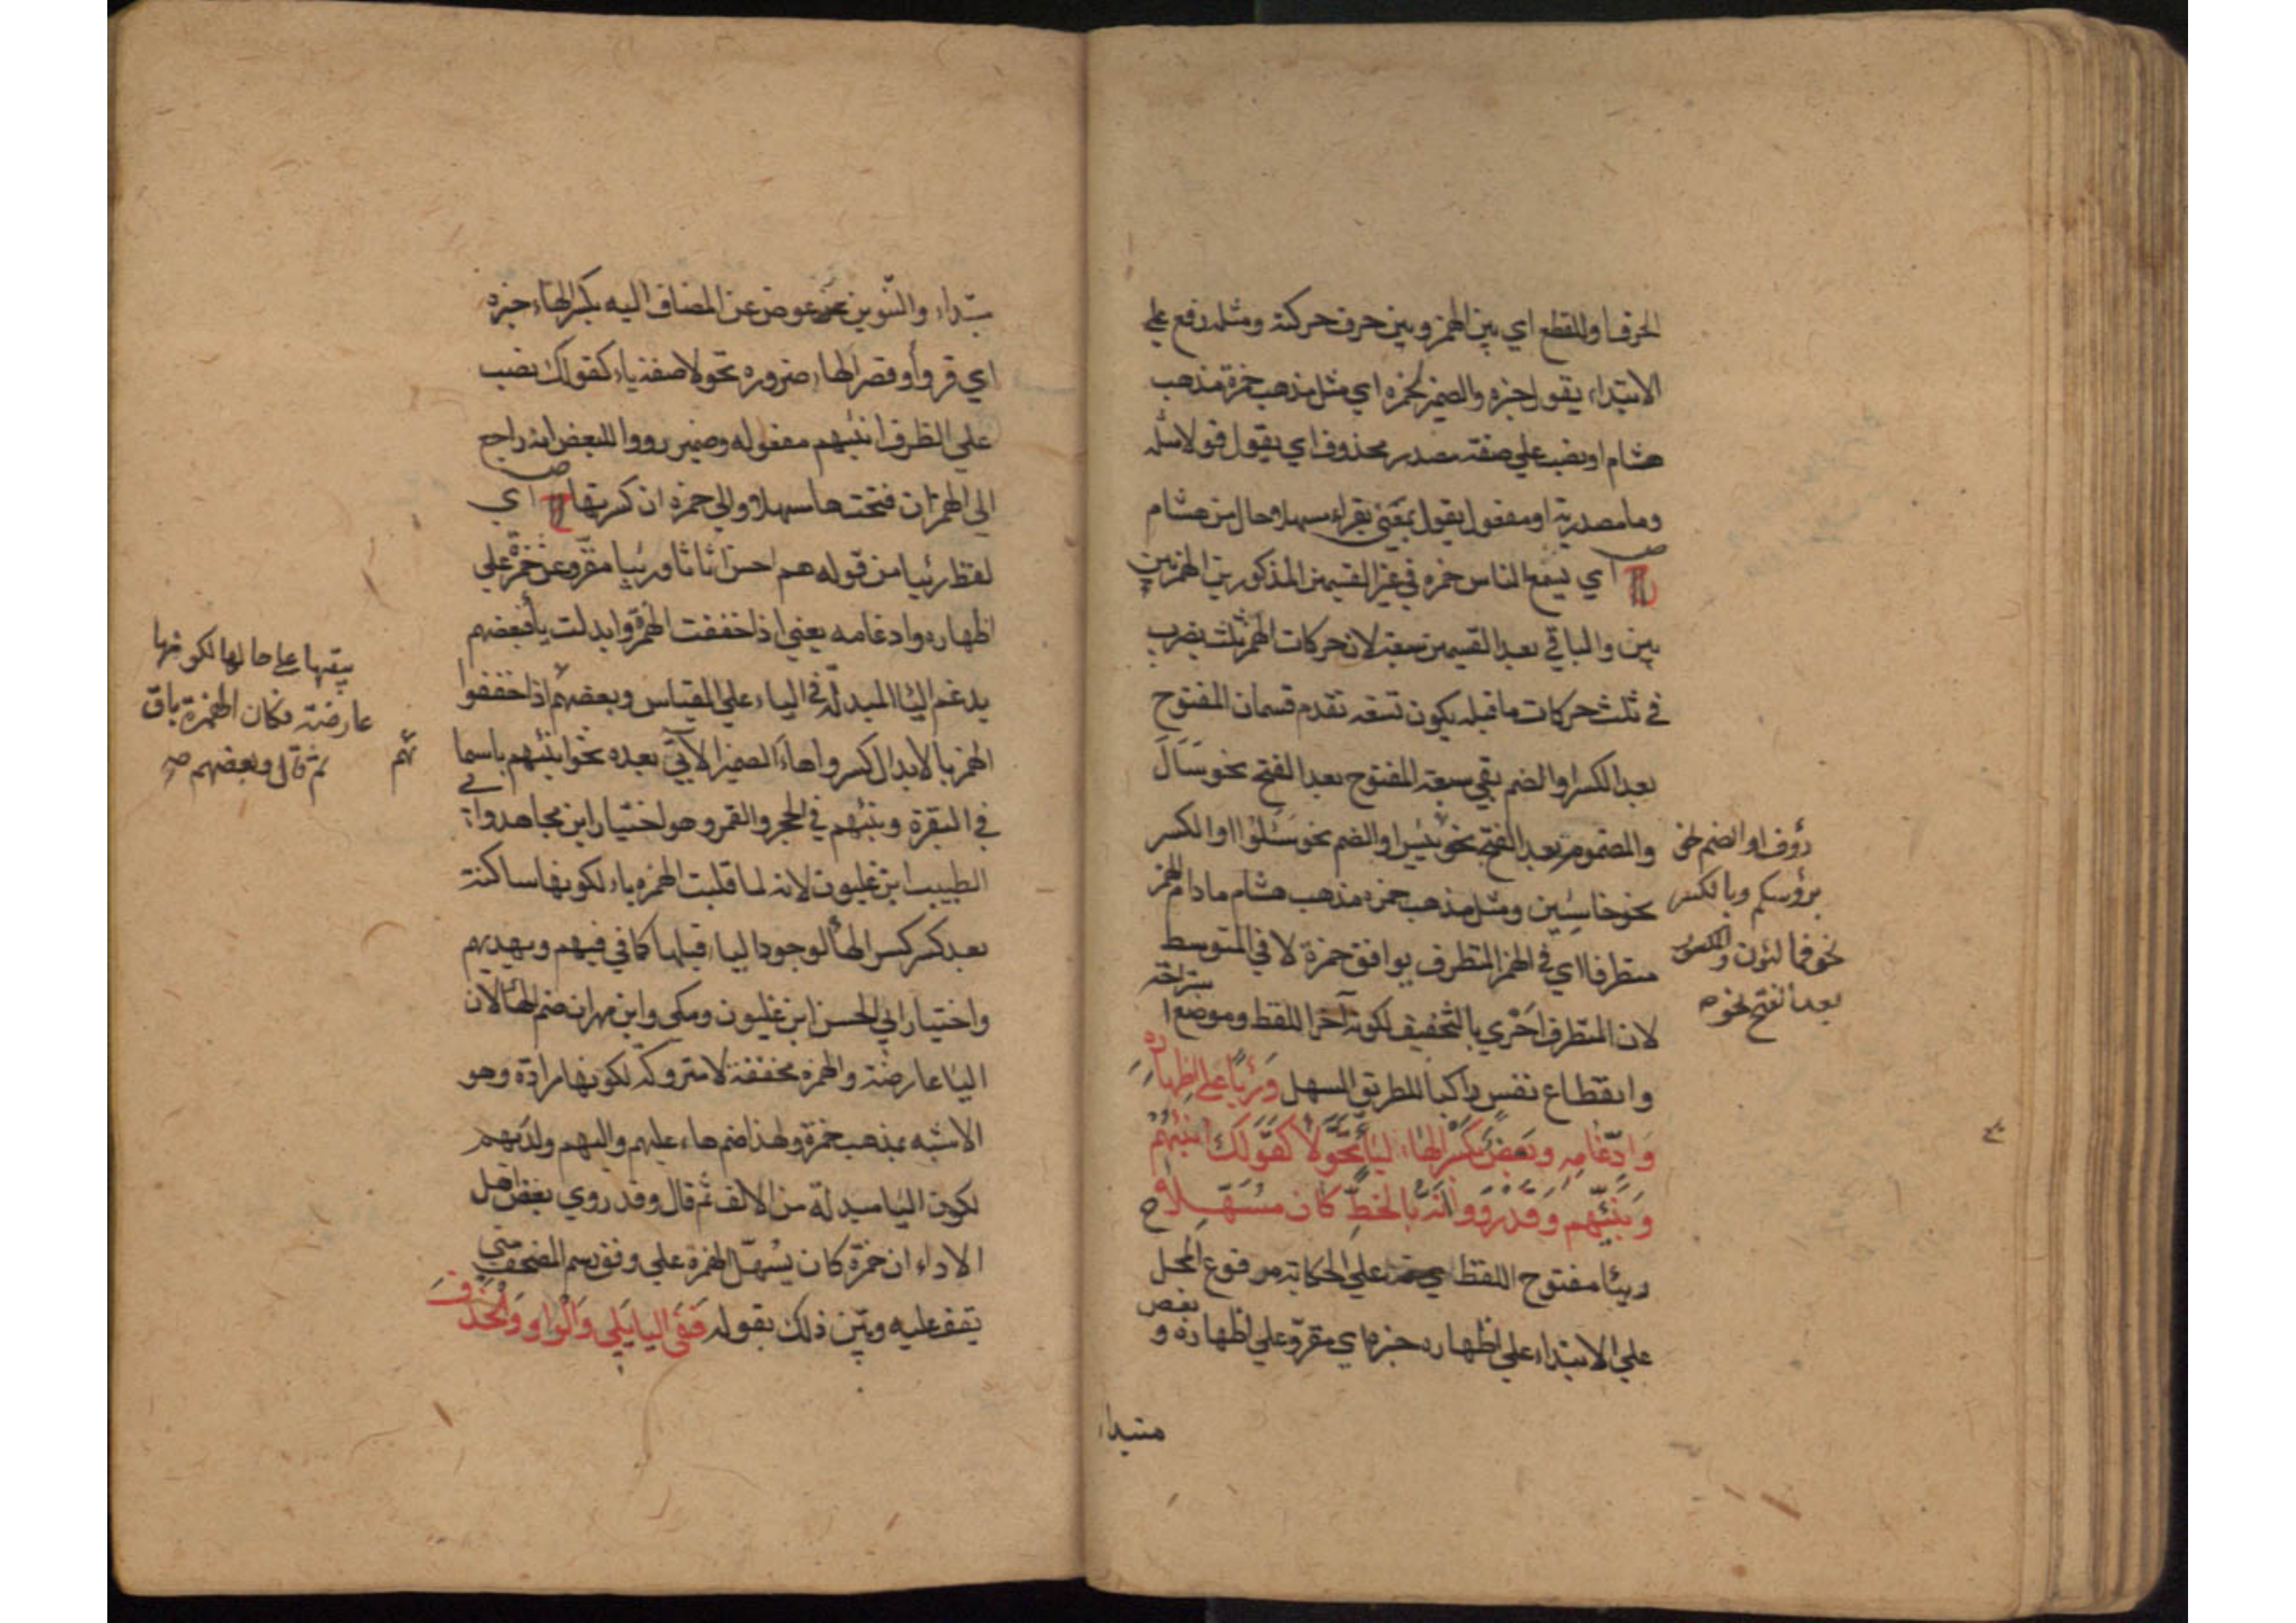 الحرف او للقطع اي بين الهمز وبين حرف حركته ومثله رفع علي
الابتداء يقول خبره والضمير لحمزه اي مثل مذهب حمزة مذهب
هشام او نصب علي صفة مصدر محذوف اي يقول قولا مثله
وما مصدرية او مفعول يقول بمعني يقراء مسهلا حال من هشام
ص
ش اي يسمع الناس حمزه في غير القسيمن المذكورين الهمز بين
بين والباقي بعد القسيمن سبعة لان حركات الهمز ثلث يضرب
في ثلث حركات ما قبله يكون تسعه تقدم قسمان المفتوح
بعد الكسر او الضم بقي سبعة المفتوح بعد الفتح نحو سَأَلَ
والمضموم بعد الفتح نحو يئس او الضم نحو سئلوا او الكسر
نحو خاسئين ومثل مذهب حمزه مذهب هشام مادام الهمز
متطرفا اي في الهمز المتطرف يوافق حمزة لا في المتوسط
لان المتطرف أحْري بالتخفيف لكونه آخر اللفظ وموضع استراحة
وانقطاع نفس راكبا للطريق المسهل وَرِئيًا علي اظهاره
وَادّغامِهِ وبَعضٌ بكَسْرِ الهَاءِ لِيَاءٍ تَحَوَّلاَ كقَوْلِكَ أنبِئْهُمْ
وَنَبِّئْهُم وَقَدْ رَوَوْا أَنَّهُ بالخَطِّ كَانَ مُسَهَّلاَ ح
ورئيا مفتوح اللفظ علي الحكاية مرفوع المحل
علي الابتداء علي اظهاره خبره اي مقروّ علي اظهاره و بعض
مبتداء
رؤف او الضم نحو
برؤسكم وبالكسر
نحو فمالئون والمكسور
بعد الفتح نحو صح
مبتداء والتنوين عوض عن المضاف اليه بكسر الهاء خبره
اي قرؤا وقصر الهاء ضروره تحولا صفة ياء كقولك نصب
علي الظرف انبئهم مفعوله وضمير رووا للبعض انه راجع
الي الهمز ان فتحت هاء مسهلا والي حمزه ان كسرتها ش اي
ص
لفظ رئيا من قوله هم احسن اثاثا ورئيا مقروّ عن حمزة علي
اظهاره وادغامه يعني اذا خففت الهمزة وابدلت ياء فبعضهم
يدغم اليا المبدلة في الياء علي القياس وبعضهم اذا خففوا
الهمز بالابدال كسروا هاء الضمير الآتي بعده نحو انبئهم باسمائهم
في البقرة ونبئهم في الحجر والقمر وهو اختيار ابن مجاهد وابي
الطيب ابن غلبون لانه لما قلبت الهمزه ياء لكونها ساكنة
بعد كسر كسر الهاء لوجود الياء قبلها كما في فيهم ويهديهم
واختيار ابي الحسن ابن غلبون ومكي وابن مهران ضم الهاء لان
الياء عارضة والهمزه مخففة لا متروكة لكونها مرادة وهو
الاشبه بمذهب حمزة ولهذا ضم هاء عليهم واليهم ولديهم
لكون الياء مبدلة من الالف ثم قال وقد روي بعض اهل
الاداء ان حمزة كان يُسَهّل الهمزة علي وفق رسم المصحف متي
يقف عليه وبيّن ذلك بقوله فَفي اليا يَلِي وَالْوَاوِ وَالْحَذْفِ
يبقيها علي حالها لكونها
عارضة فكان الهمزة باق
ثم قال وبعضهم صح